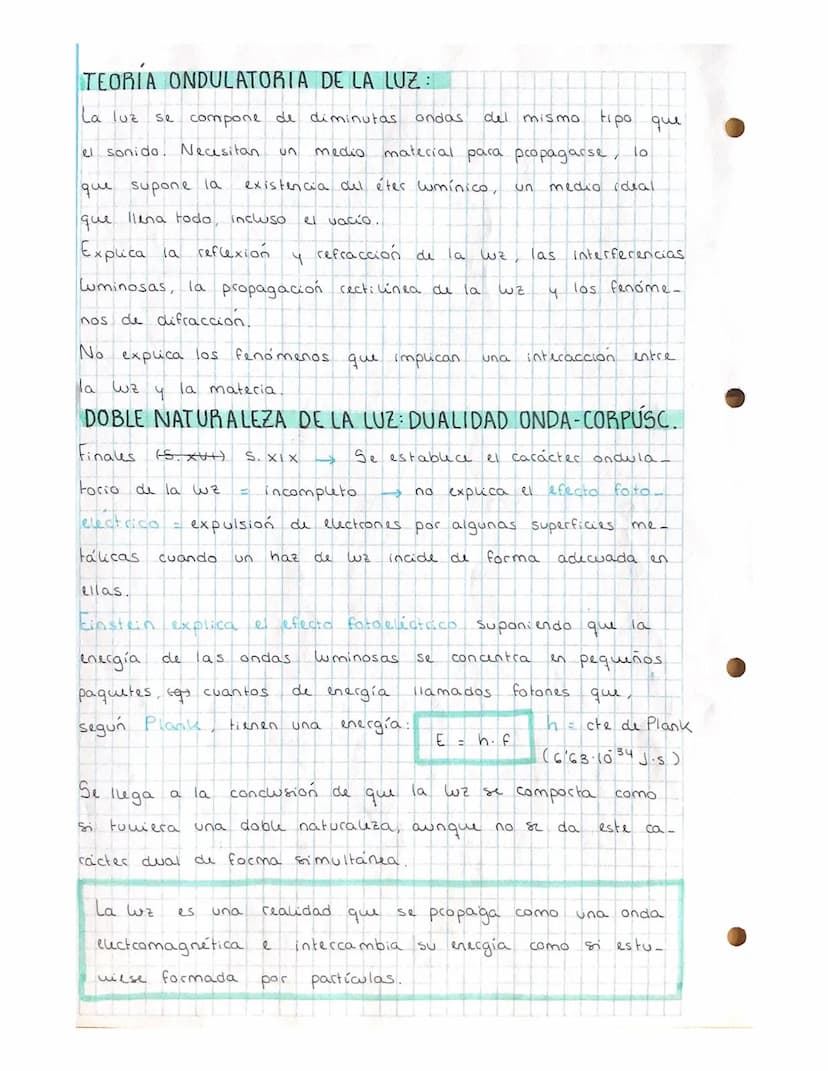 TEORÍA ONDULATORIA DE LA LUZ:
La luz se compone de diminutas ondas del mismo tipo que
el sonido. Necesitan un medio material para propagarse, lo
que supone la existencia del éter lumínico, un medio ideal
que llena todo, incluso el vacío.
Explica la reflexión y refracción de la luz, las interferencias
luminosas, la propagación rectilínea de la luz y los fenóme-
nos de difracción.
No explica los fenómenos que implican una interacción entre
la luz y la materia.
DOBLE NATURALEZA DE LA LUZ: DUALIDAD ONDA-CORPÚSC.
Finales (S. XVI) S. XIX → Se establece el carácter ondula-
torio de la luz = incompleto → no explica el efecto foto-
eléctrico = expulsión de electrones por algunas superficies me-
tálicas cuando un haz de luz incide de forma adecuada en
ellas.
Einstein explica el efecto fotoeléctrico suponiendo que la
energía de las ondas luminosas se concentra en pequeños
paquetes, cuantos de energía llamados fotones que,
según Plank, tienen una energía: E = h·f h = cte de Plank
(6'63·10⁻³⁴ J·s)
Se llega a la conclusión de que la luz se comporta como
si tuviera una doble naturaleza, aunque no se da este ca-
rácter dual de forma simultánea.
La luz es una realidad que se propaga como una onda
electromagnética e intercambia su energía como si estu-
viese formada por partículas.